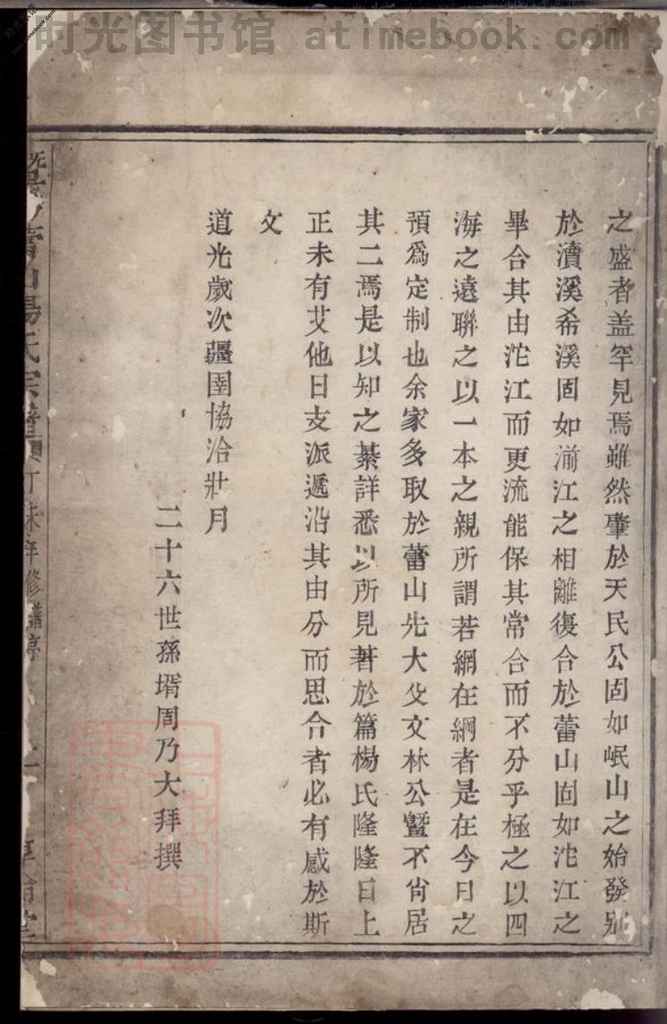 时光图书馆 atimebook.com
之盛者盖罕見焉雖然肇於天民公固如岷山之始發别
於瀆溪希溪固如湔江之相離復合於蕾山固如沱江之
畢合其由沱江而更流能保其常合而不分乎極之以四
海之遠聯之以一本之親所謂若網在綱者是在今日之
預爲定制也余家多取於蕾山先大父文林公暨不肖居
其二焉是以知之綦詳悉以所見著於篇楊氏隆隆日上
正未有艾他日支派遞沿其由分而思合者必有感於斯
文
道光歲次疆圉協洽壯月
二十六世孫壻周乃大拜撰
山楊氏宗譜丁未年修譜序